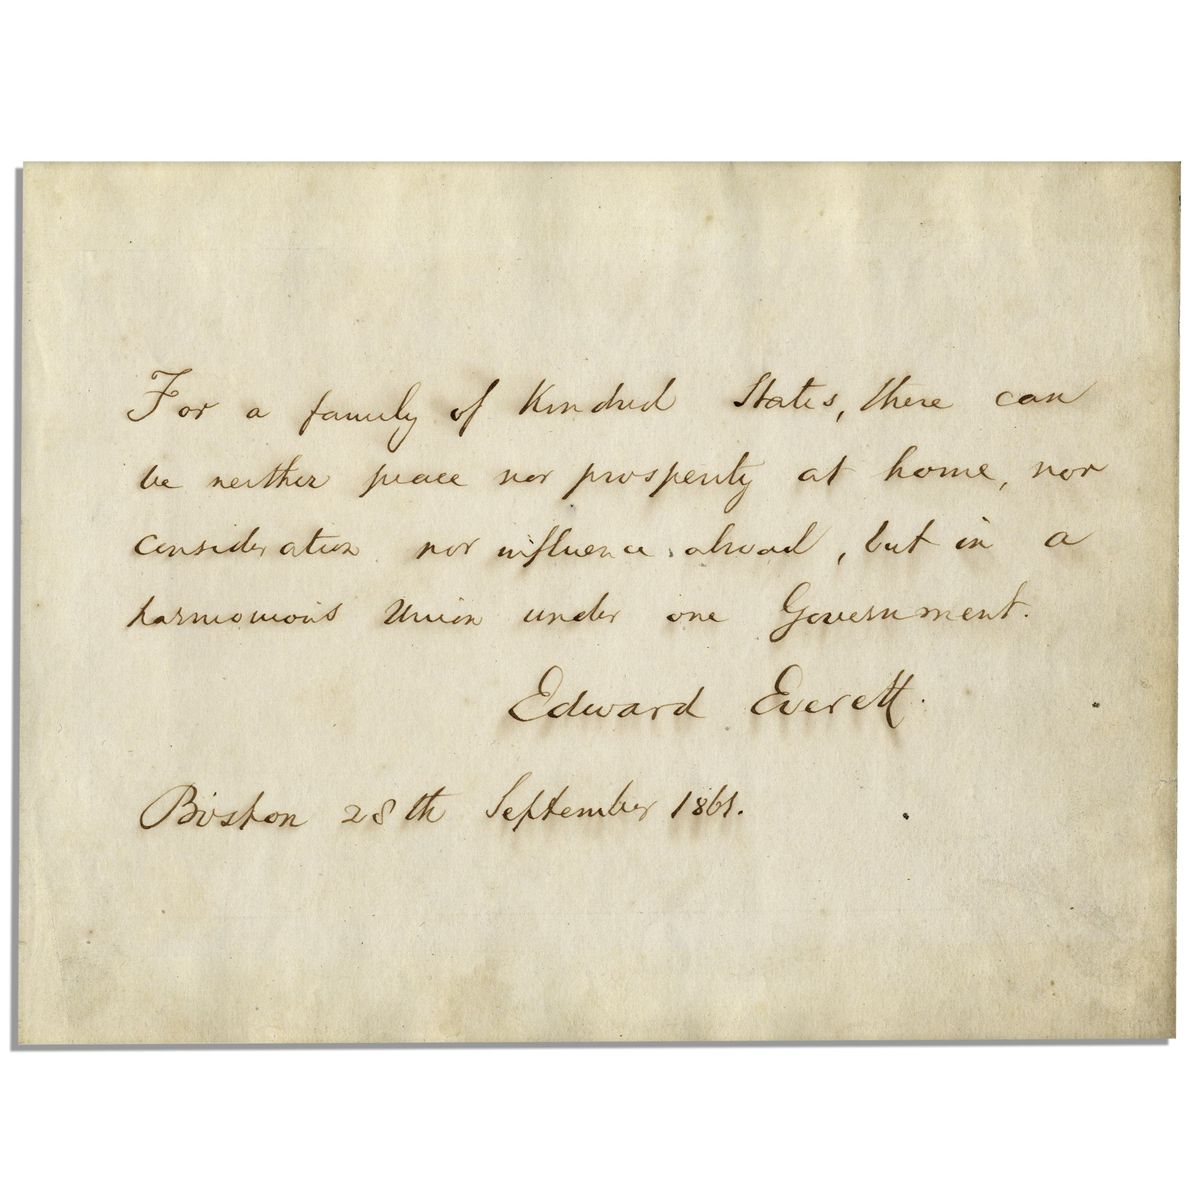 For a family of Kindred States, there can
be neither peace nor prosperity at home, nor
consideration nor influence abroad, but in a
harmonious Union under one Government.
Edward Everett.
Boston 28th September 1861.